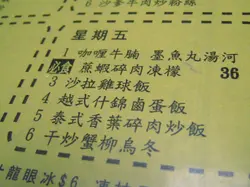 6 沙爹牛肉炒粉絲
星期五
1 咖哩牛腩 墨魚丸湯河
必食 蔗蝦碎肉凍檬 36
3 沙拉雞球飯
4 越式什錦鹵蛋飯
5 泰式香葉碎肉炒飯
6 干炒蟹柳烏冬
龍眼冰$6